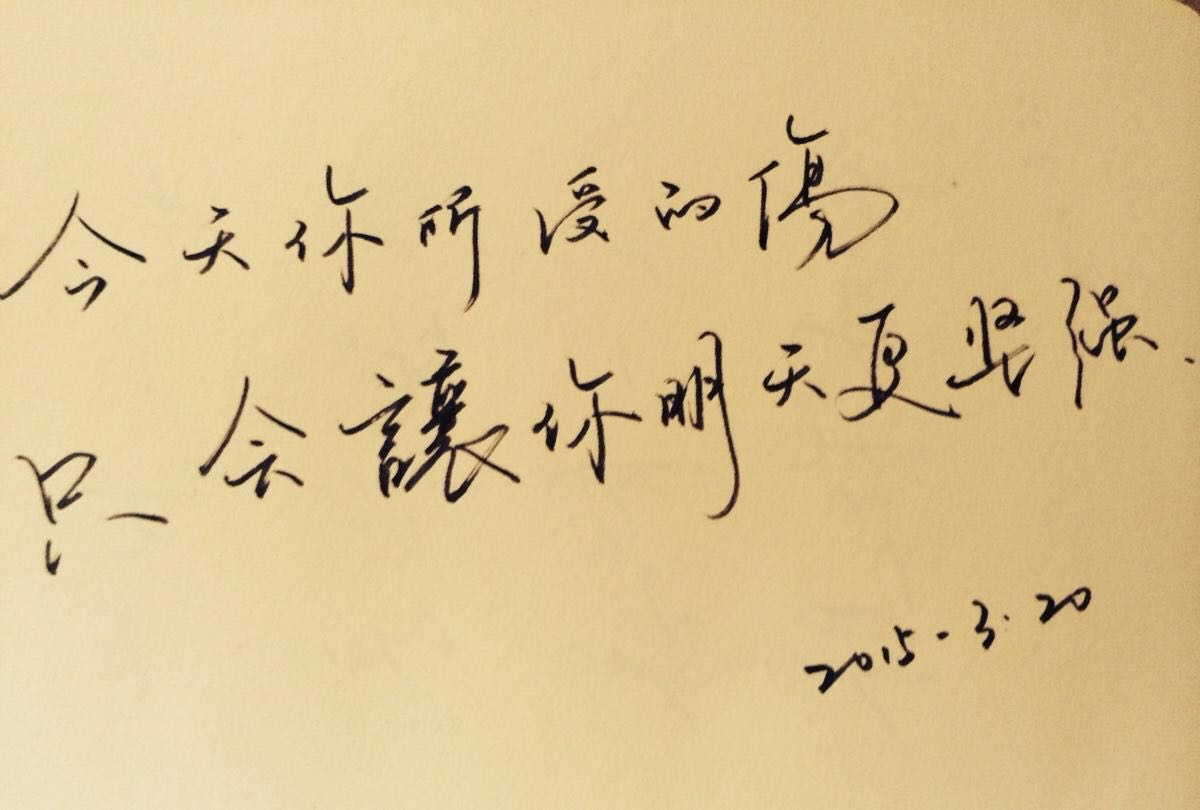 今天你所受的傷
只会讓你明天更坚强.
2015.3.20